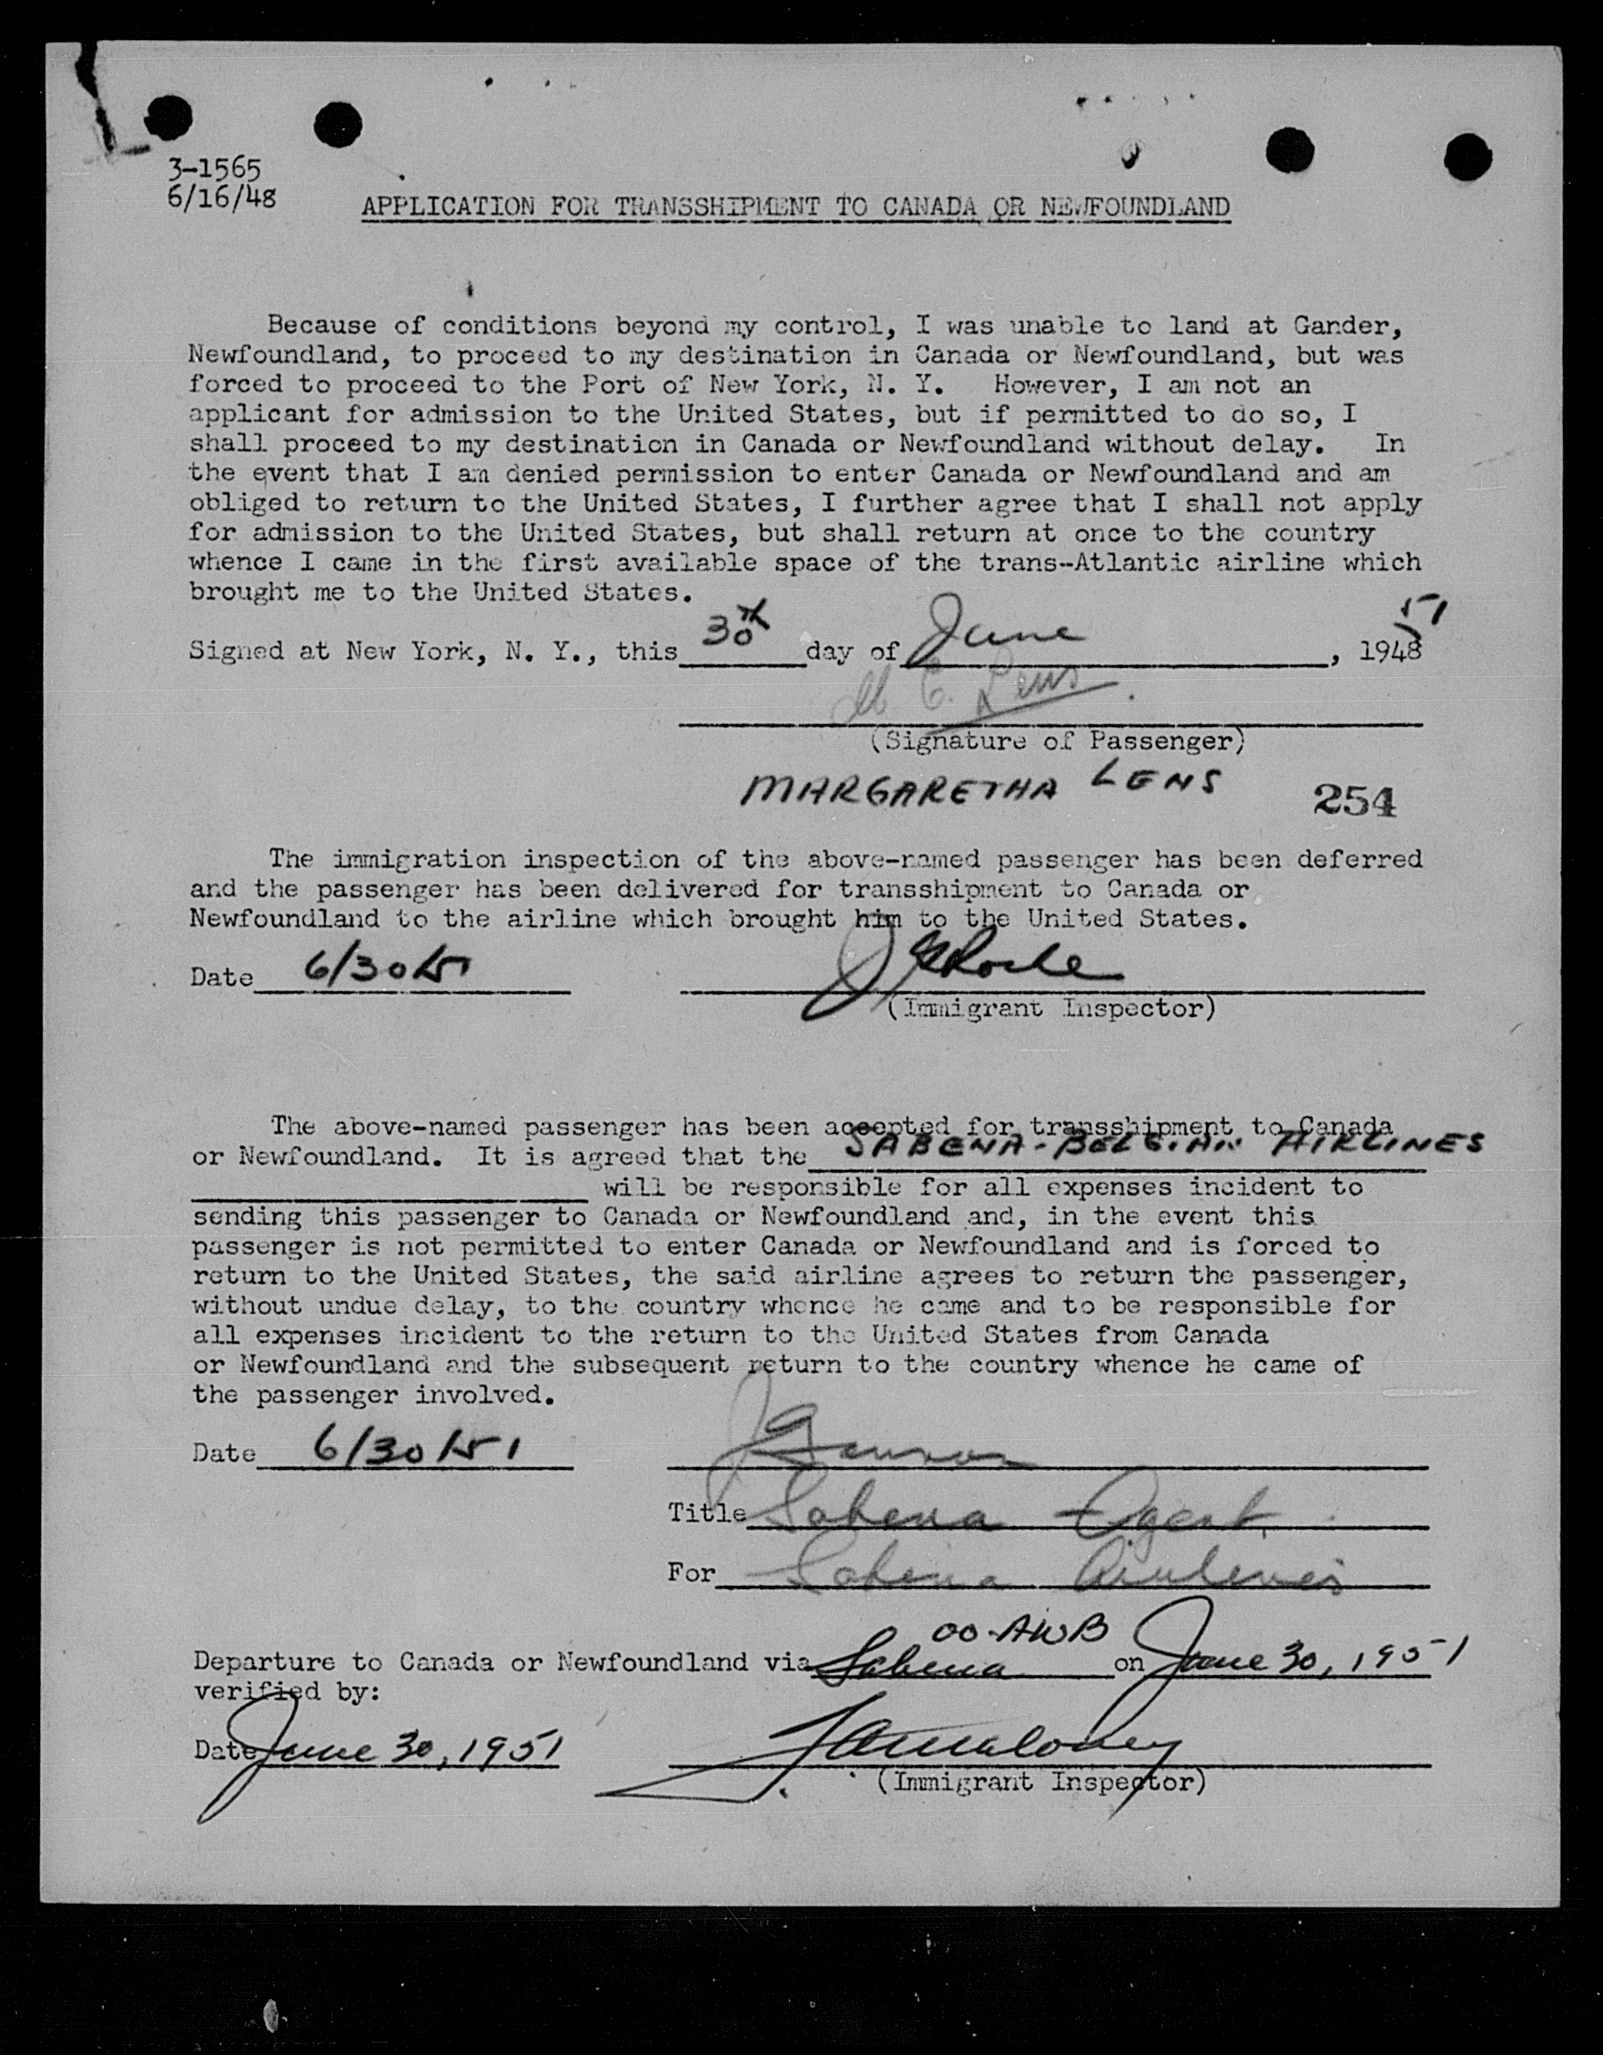 3-1565
6/16/48
APPLICATION FOR TRANSSHIPMENT TO CANADA OR NEWFOUNDLAND
Because of conditions beyond my control, I was unable to land at Gander,
Newfoundland, to proceed to my destination in Canada or Newfoundland, but was
forced to proceed to the Port of New York, N. Y. However, I am not an
applicant for admission to the United States, but if permitted to do so, I
shall proceed to my destination in Canada or Newfoundland without delay. In
the event that I am denied permission to enter Canada or Newfoundland and am
obliged to return to the United States, I further agree that I shall not apply
for admission to the United States, but shall return at once to the country
whence I came in the first available space of the trans-Atlantic airline which
brought me to the United States.
Signed at New York, N. Y., this 30th day of June, 1948 51
M C. Lens
(Signature of Passenger)
MARGARETHA LENS 254
The immigration inspection of the above-named passenger has been deferred
and the passenger has been delivered for transshipment to Canada or
Newfoundland to the airline which brought him to the United States.
Date 6/30/51 J Roche
(Immigrant Inspector)
The above-named passenger has been accepted for transshipment to Canada
or Newfoundland. It is agreed that the SABENA-BELGIAN AIRLINES
will be responsible for all expenses incident to
sending this passenger to Canada or Newfoundland and, in the event this
passenger is not permitted to enter Canada or Newfoundland and is forced to
return to the United States, the said airline agrees to return the passenger,
without undue delay, to the country whence he came and to be responsible for
all expenses incident to the return to the United States from Canada
or Newfoundland and the subsequent return to the country whence he came of
the passenger involved.
Date 6/30/51
Title Sabena Agent
For Sabena Airlines
OO-AWB
Departure to Canada or Newfoundland via Sabena on June 30, 1951
verified by:
Date June 30, 1951 Maloney
(Immigrant Inspector)